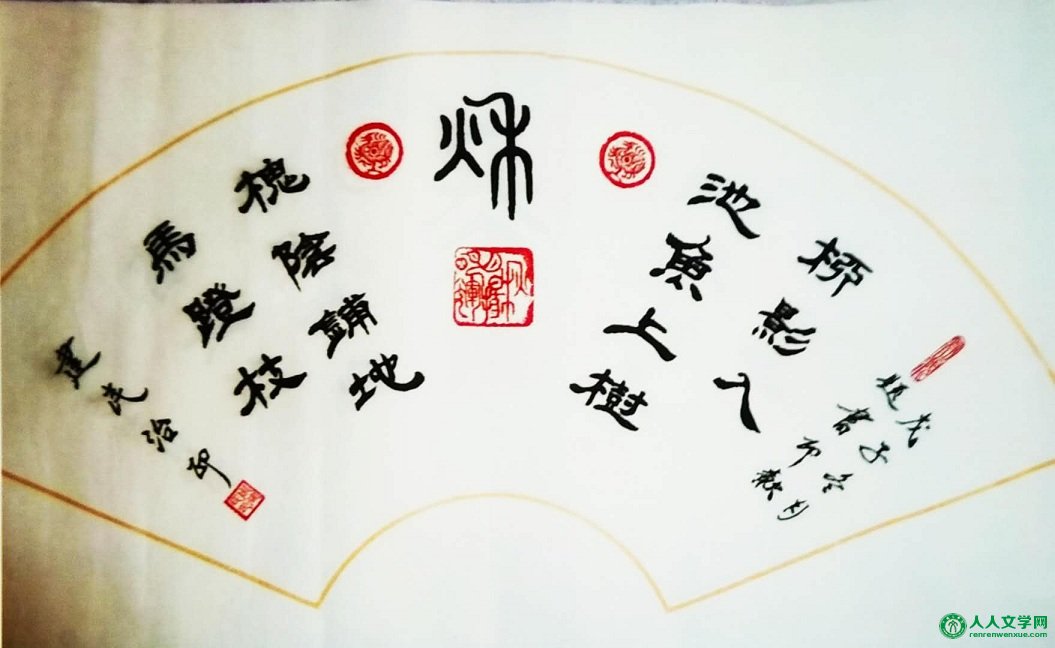 戊子
柳影入
池魚上樹
秌
槐陰鋪地
馬蹬枝
建民治印
人人文学网
renrenwenxue.com